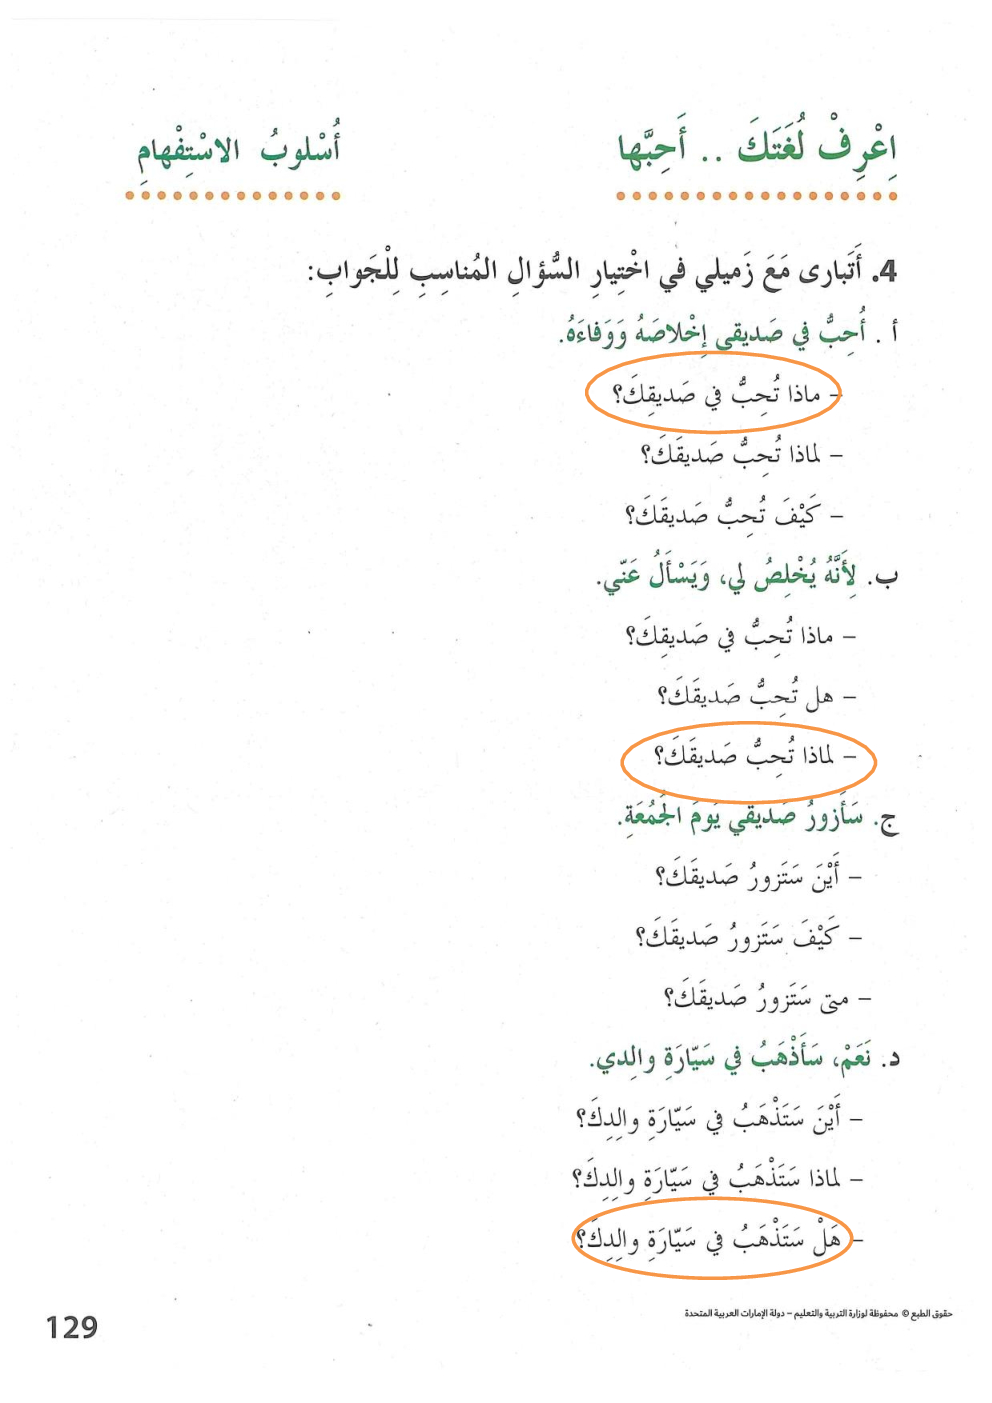 اِعْرِفْ لُغَتَكَ .. أَحِبَّها
أُسْلوبُ الاسْتِفْهامِ
4. أَتَبارى مَعَ زَميلي في اخْتِيارِ السُّؤالِ المُناسِبِ لِلْجَوابِ:
أ . أُحِبُّ في صَديقي إِخْلاصَهُ وَوَفاءَهُ.
– ماذا تُحِبُّ في صَديقِكَ؟
– لماذا تُحِبُّ صَديقَكَ؟
– كَيْفَ تُحِبُّ صَديقَكَ؟
ب. لِأَنَّهُ يُخْلِصُ لي، وَيَسْأَلُ عَنّي.
– ماذا تُحِبُّ في صَديقِكَ؟
– هل تُحِبُّ صَديقَكَ؟
– لماذا تُحِبُّ صَديقَكَ؟
ج. سَأَزورُ صَديقي يَومَ الجُمُعَةِ.
– أَيْنَ سَتَزورُ صَديقَكَ؟
– كَيْفَ سَتَزورُ صَديقَكَ؟
– متى سَتَزورُ صَديقَكَ؟
د. نَعَمْ، سَأَذْهَبُ في سَيّارَةِ والِدي.
– أَيْنَ سَتَذْهَبُ في سَيّارَةِ والِدِكَ؟
– لماذا سَتَذْهَبُ في سَيّارَةِ والِدِكَ؟
– هَلْ سَتَذْهَبُ في سَيّارَةِ والِدِكَ؟
حقوق الطبع © محفوظة لوزارة التربية والتعليم – دولة الإمارات العربية المتحدة
129